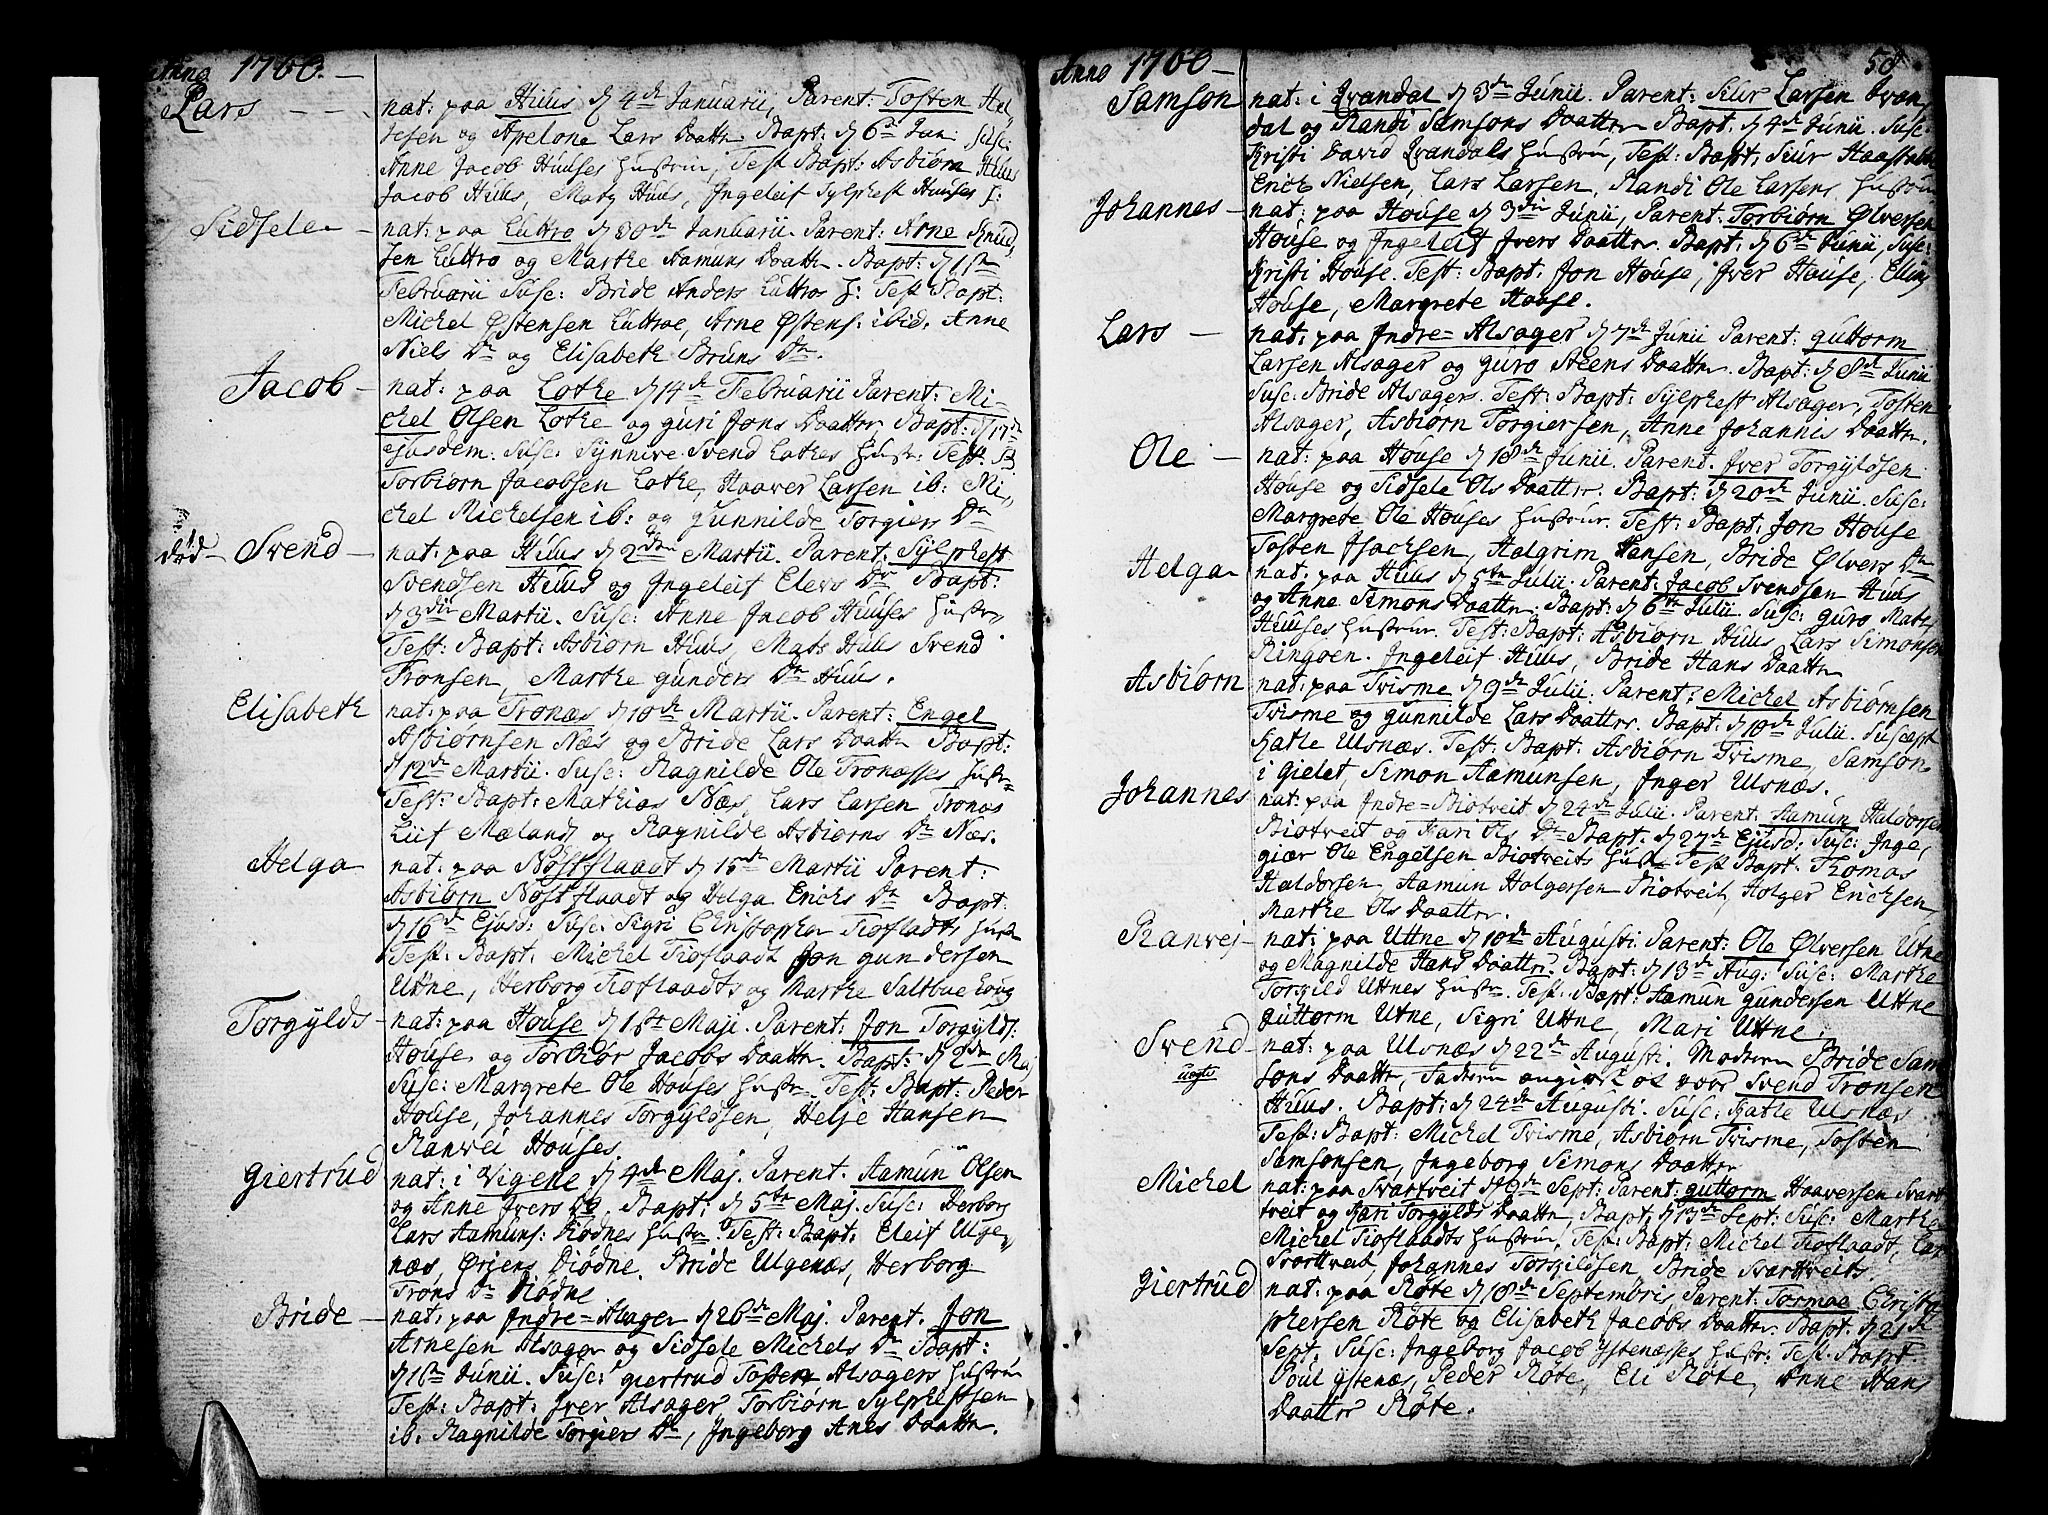 Anno 1760.
Lars - - - nat: paa Huus d 4de Januarii, Parent: Tosten Hel
jesen og Apelone Lars Daatter. Bapt: d 6te Jan: Susc:
Anne Jacob Huuses Hustru, Test Bapt: Asbiørn Huus
Jacob Huus, Mats Huus, Ingeleif Sylphest Huuses H:
Sidsele - nat: paa Luttro d 30de Januarii. Parent: Arne Knud
sen Luttro og Marthe Aamuns Daatter. Bapt: d 1ste
Februarii Susc: Bride Anders Luttros H: Test Bapt:
Michel Østensen Luttroe, Arne Østens: ibid. Anne
Niels Dr og Elisabeth Bruns Dr.
Jacob - nat: paa Lothe d 14de Februarii Parent: Mi-
chel Olsen Lothe og Guri Jons Daatter Bapt: d 17de
ejusdem: Susc: Synnive Svend Lothes Hustr: Test: B
Torbiørn Jacobsen Lothe, Haaver Larsen ib: Mi,
chel Michelsen ib: og Gunnilde Torgiers Dr
død - Svend - nat: paa Huus d 2den Martii. Parent: Sylphest
Svendsen Huus og Ingeleif Elevs Dr Bapt:
d 3die Martii. Susc: Anne Jacob Huuses Hustr
Test: Bapt: Asbiørn Huus, Mats Huus Svend
Tronsen, Marthe Gunders Dr Huus.
Elisabeth nat: paa Tronæs d 10de Martii. Parent: Engel
Asbiørnsen Næs og Bride Lars Daatter Bapt:
d 12de Martii. Susc: Ragnilde Ole Tronæsses Hustr
Test: Bapt: Mathias Næs, Lars Larsen Tronæs
Liif Mæland og Ragnilde Asbiørns Dr Næs.
Helga nat: paa Nøstflaadt d 15de Martii Parent:
Asbiørn Nøstflaadt og Helga Erichs Dr Bapt:
d 16de Ejusd: Susc: Sigri Christopher Tioflaadts Hustr
Test: Bapt: Michel Tioflaadt Jon Gundersen
Uttne, Herborg Tioflaadts og Marthe Saltbue
Torgylds - nat: paa House d 1ste Maji. Parent: Jon Torgylds:
House og Torbiør Jacobs Daatter. Bapt: d 2den Maj
Susc: Margrete Ole Houses Hustr. Test: Bapt: Peder
House, Johannes Torgyldsen, Helje Hansen
Ranvei Houses
Giertrud nat: i Vigene d 4de Maj. Parent. Aamun Olsen
og Anne Ivers Dr. Bapt: d 5te Maj. Susc: Herborg
Lars Aamuns: Diødnes Hustr. Test: Bapt: Eleif Ulge-
næs, Ørjens Diødne. Bride Ulgenæs, Herborg
Trons Dr Diødne
Bride - nat: paa Indre=Alsager d 26de Maj. Parent. Jon
Arnesen Alsager og Sidsele Michels Dr Bapt:
d 1ste Junii. Susc: Giertrud Tosten Alsagers Hustru
Test: Bapt: Iver Alsager Torbiørn Sylphestsen
ib. Ragnilde Torgiers Dr, Ingeborg Arnes Daatter.
Anno 1760 - 58
Samson nat: i Qvandal d 3de Junii. Parent: Siur Larsen Qvan,
dal og Randi Samsons Daatter Bapt. d 4de Junii. Susc:
Kristi David Qvandals Hustru, Test: Bapt. Siur
Erich Nielsen, Lars Larsen, Randi Ole Larsens Hustru
Johannes - nat: paa House d 3die Junii, Parent: Torbiørn Ølversen
House og Ingeleif Ivers Daatter. Bapt: d 6te Junii, Susc:
Kristi House. Test: Bapt. Jon House, Iver House, Elling
House, Margrete House.
Lars - nat: paa Indre=Alsager d 7de Junii Parent: Guttorm
Larsen Alsager og Guro Steens Daatter. Bapt: d 8de Junii
Susc: Bride Alsagers. Test: Bapt: Sylphest Alsager, Tosten
Alsager, Asbiørn Torgiersen, Anne Johannis Daatter.
Ole - nat: paa House d 18de Junii. Parent. Iver Torgyldsen
House og Sidsele Ols Daatter. Bapt: d 20de Junii. Susc:
Margrete Ole Houses Hustrur. Test: Bapt: Jon House
Tosten Isachsen, Halgrim Hansen, Bride Ølvers Dr
Helga nat: paa Huus d 5te Julii. Parent: Jacob Svendsen Huus
og Anne Simons Daatter. Bapt: d 6te Julii. Susc: Guro Mats
Huuses Hustrur. Test: Bapt: Asbiørn Huus Lars Simonsen
Ringøen. Ingeleif Huus, Bride Hans Daatter
Asbiørn nat: paa Tvisme d 9de Julii. Parent: Michel Asbiørnsen
Tvisme og Gunnilde Lars Daatter. Bapt: d 10de Julii. Suscept
Katle Ulsnæs. Test: Bapt: Asbiørn Tvisme, Samson
i Gielet, Simon Aamunsen, Inger Ulsnæs.
Johannes nat: paa Indre=Biotveit d 24de Julii. Parent. Aamun Haldorsen
Biotveit og Kari Ols Dr Bapt. d 27de Ejusd: Susc: Inge,
giær Ole Engelsen Biotveits Hustr Test Bapt. Thomas
Haldorsen, Aamun Holgersen Biotveit, Holger Erichsen,
Marthe Ols Daatter.
Ranvei - nat: paa Uttne d 10de Augusti. Parent: Ole Ølversen Utne
og Magnilde Hans Daatter. Bapt: d 13de Aug: Susc: Marthe
Torgild Uttnes Hustr. Test: Bapt: Aamun Gundersen Uttne
Guttorm Utne, Sigri Uttne, Mari Uttne.
Svend - nat: paa Ulsnæs d 22de Augusti. Moderen Bride Sam
uægte sons Daatter, Faderen angivet at vær Svend Tronsen
Huus. Bapt: d 24de Augusti. Susc: Katle Ulsnæs
Test: Bapt: Michel Tvisme, Asbiørn Tvisme, Tosten
Samsonsen, Ingeborg Simons Daatter
Michel nat: paa Svartveit d 9de Sept: Parent: Guttorm Haaversen Svart
tveit og Kari Torgylds Daatter, Bapt: d 13de Sept: Susc: Marthe
Michel Tioflaadts Hustru, Test: Bapt: Michel Tioflaadt, Lars
Svarttveid, Johannes Torgildsen, Bride Svarttveits.
Giertrud nat: paa Røte d 18de Septembris Parent: Tormoe Christo
phersen Røte og Elisabeth Jacobs Daatter. Bapt. d 21de
Sept. Susc: Ingeborg Jacob Ystenæsses Hustr: Test. Bapt.
Poul Ystenæs, Peder Røte, Eli Røte, Anne Hans
Daatter Røte.